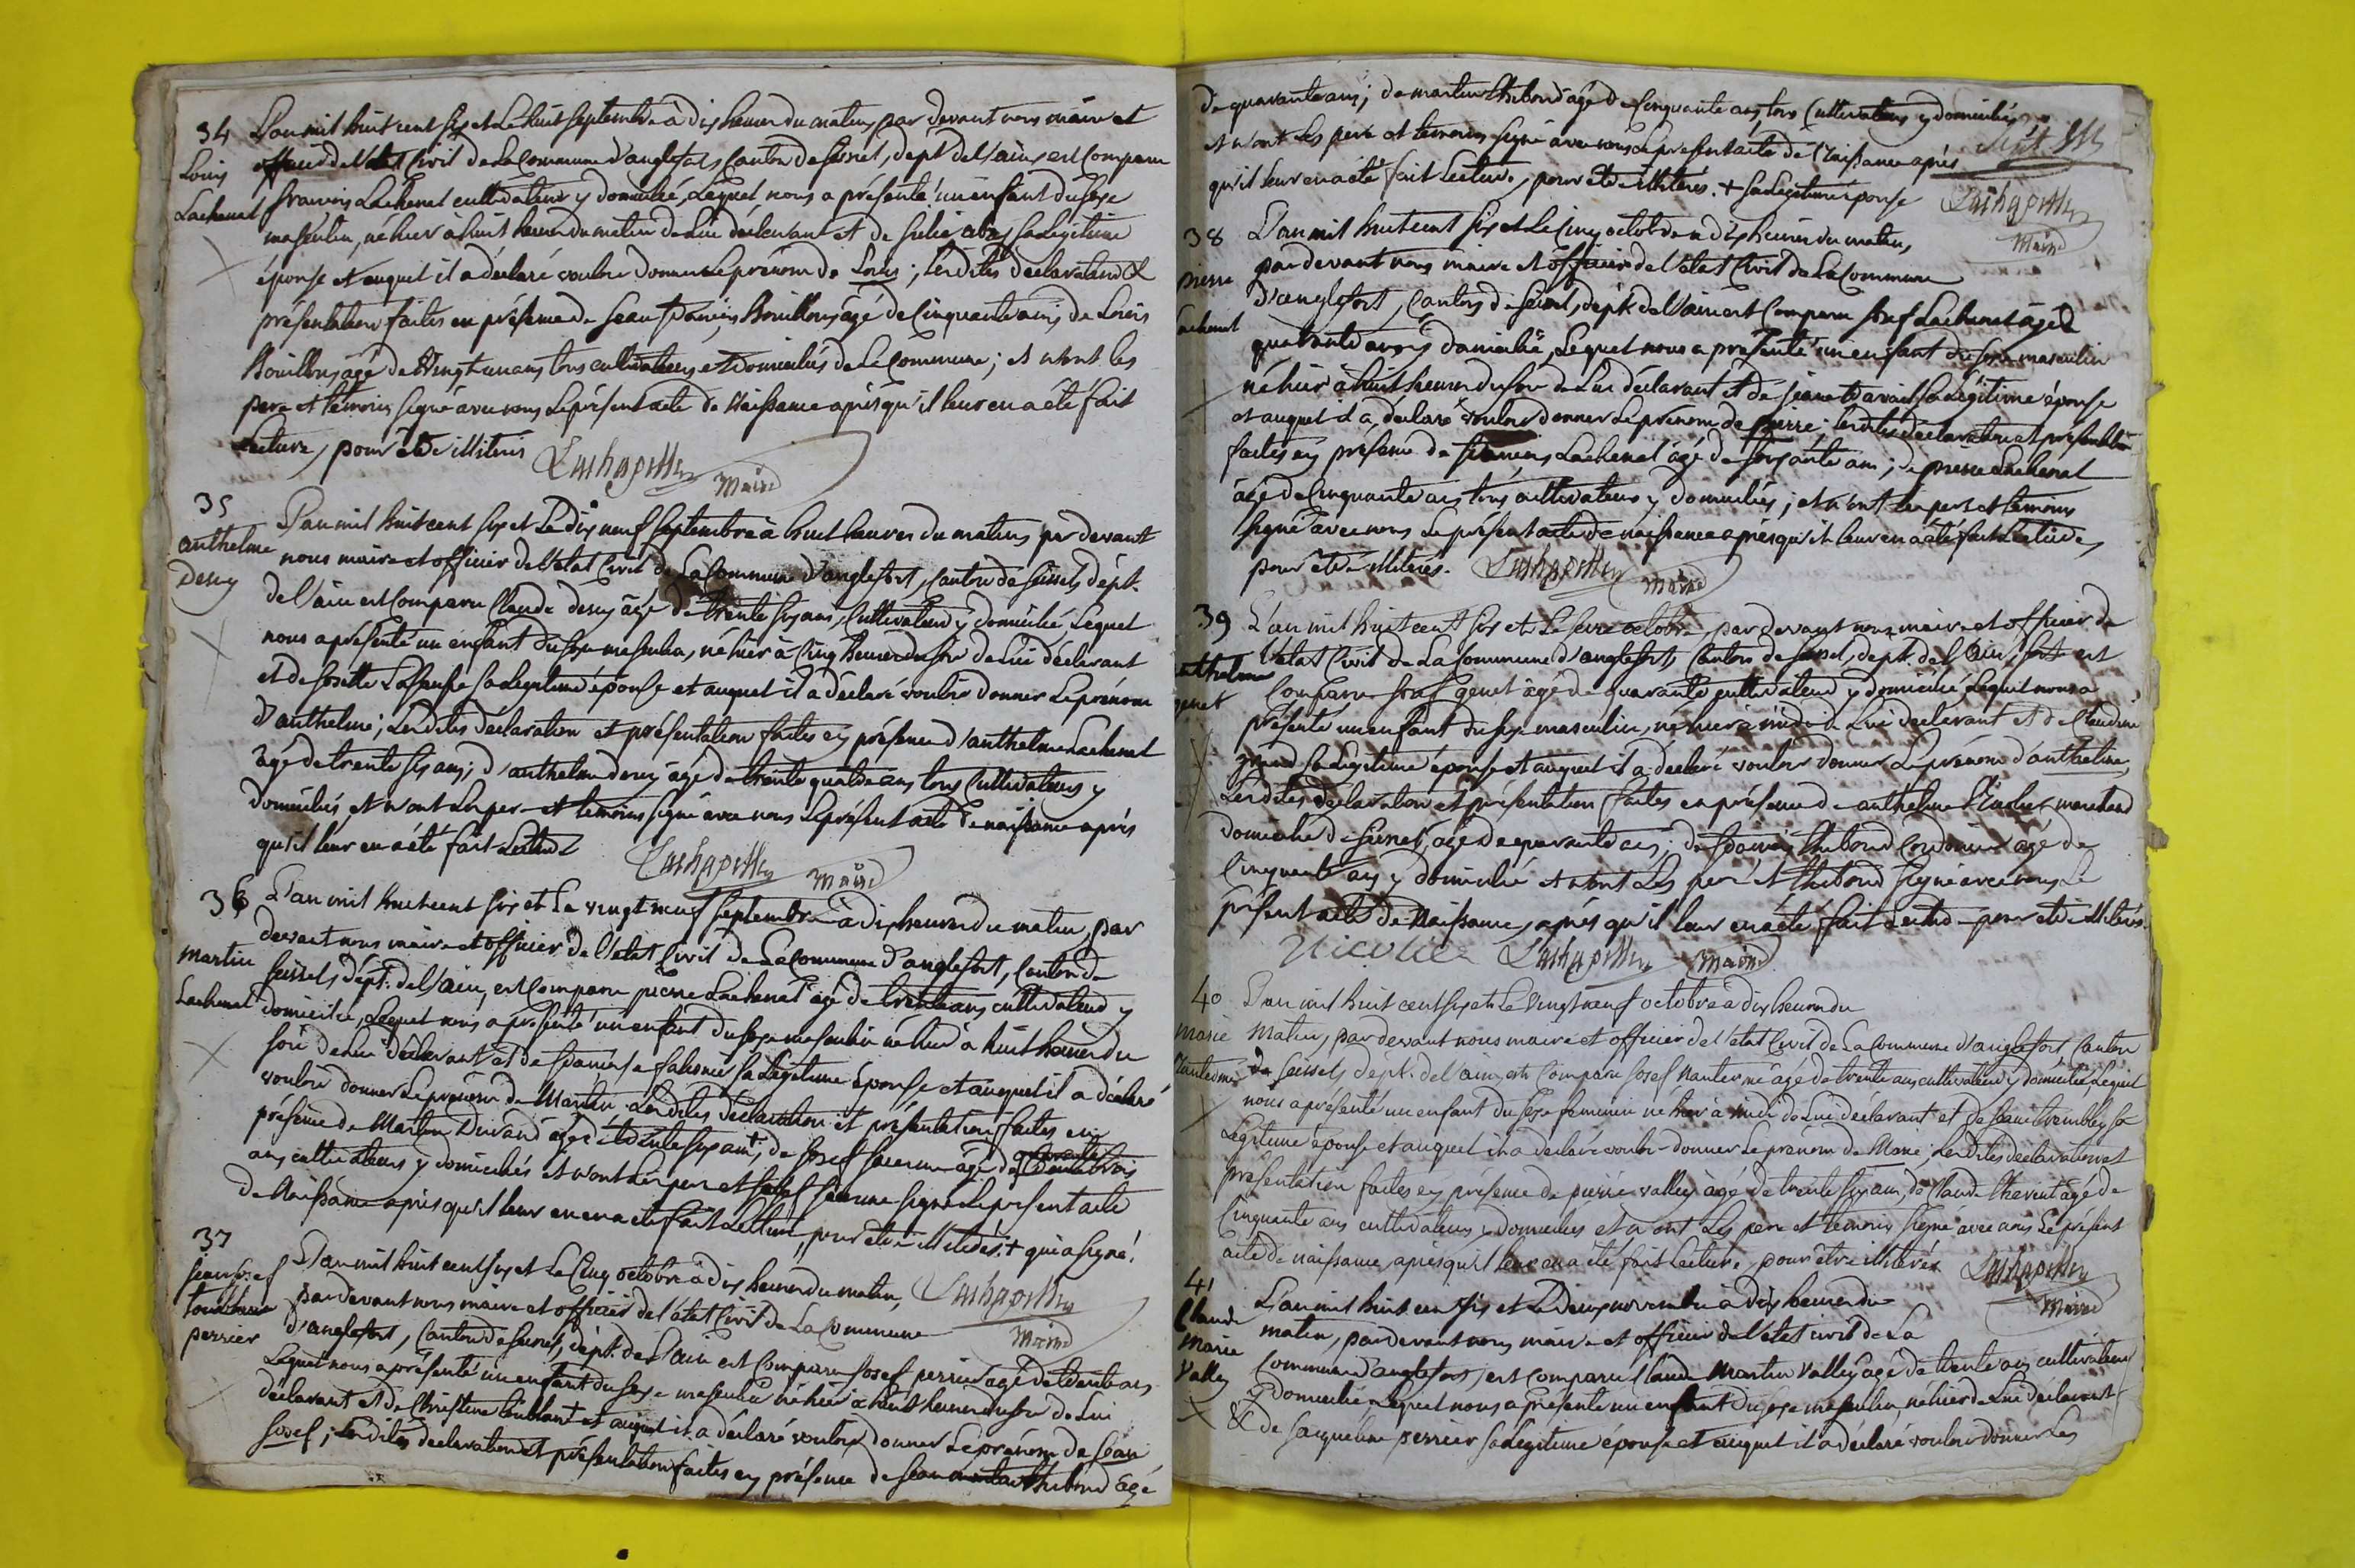 34
Louis
Lachenal
L'an mil huit cent six et le huit septembre à dix heures du matin, par devant nous maire et
officier de l'état civil de la Commune d'anglefort, Canton de seissel, dépt. de l'ain, est Comparu
francois Lachenal cultivateur y domicilié, Lequel nous a présenté un enfant du sexe
masculin, né hier à huit heures du matin de lui déclarant et de sa légitime
épouse et auquel il a déclaré vouloir donner le prénom de Louis; Lesdites declaration et
présentation faites en présence de jean francois Bouillon, âgé de Cinquante ans, de Louis
Bouillon, âgé de vingt un ans tous cultivateurs et domiciliés de la Commune; et n'ont les
pere et témoins signé avec nous le présent acte de Naissance après qu'il leur en a été fait
Lecture, pour être illiteris
Lachapelle maire
35
anthelme
desey
L'an mil huit cent six et Le dix neuf septembre à huit heures du matin, par devant
nous maire et officier de l'état Civil de La Commune d'anglefort, Canton de seissel, dépt.
de l'ain est Comparu Claude desey âgé de trente six ans, Cultivateur y domicilié Lequel
nous a présenté un enfant du sexe masculin, né hier à Cinq heures du soir de Lui déclarant
et de josette sa Legitime épouse et auquel il a déclaré vouloir donner Le prénom
d'anthelme; Lesdites declaration et présentation faites en présence d'anthelme Lachenal
âgé de trente six ans; d'anthelme desey âgé de trente quatre ans tous Cultivateurs y
domiciliés, et n'ont Les pere et témoins signé avec nous Le présent acte de naissance après
qu'il leur en a été fait Lecture
Lachapelle maire
36
Martin
Lachenal
L'an mil huit cent six et Le vingt neuf septembre à dix heures du matin, par
devant nous maire et officier de l'état Civil de La Commune d'anglefort, Canton de
seissel, dépt. de l'ain, est Comparu pierre Lachenal âgé de trente ans cultivateur y
domicilié, Lequel nous a présenté un enfant du sexe masculin né hier à huit heures du
soir de Lui déclarant et de françoise sa Légitime épouse et auquel il a déclaré
vouloir donner Le prénom de Martin. Lesdites declaration et présentation faites en
présence de Martin Durand âgé de trente six ans, de josef âgé de quarante
ans cultivateurs y domiciliés et n'ont Les pere et signé Le présent acte
de Naissance après qu'il leur en a été fait Lecture, pour être illiterés. + qui a signé.
37
jean josef
perrier
L'an mil huit cent six et Le Cinq octobre à dix heures du matin,
Lachapelle
par devant nous maire et officier de l'état Civil de La Commune
maire
d'anglefort, Canton de seissel, dépt. de l'ain est Comparu josef perrier âgé de trente ans
Lequel nous a présenté un enfant du sexe masculin né hier à huit heures du soir de Lui
déclarant et de Christine + et auquel il a déclaré vouloir donner Le prénom de jean
josef; Lesdites declaration et présentation faites en présence de jean Thibond âgé
de quarante ans; de martin Thibond âgé de Cinquante ans, tous Cultivateurs y domiciliés
et n'ont Les pere et témoins signé avec nous Le présent acte de Naissance après
qu'il leur en a été fait Lecture, pour être illiteres. + sa Legitime épouse
Lachapelle
maire
38
pierre
Lachenal
L'an mil huit cent six et Le Cinq octobre à dix heures du matin,
par devant nous maire et officier de l'état Civil de La Commune
d'anglefort, Canton de seissel, dépt. de l'ain est Comparu josef Lachenal âgé de
quarante ans y domicilié, Lequel nous a présenté un enfant du sexe masculin
né hier à huit heures du soir de Lui déclarant et de jeane sa Légitime épouse
et auquel il a déclaré vouloir donner Le prénom de pierre; lesdites declaration et présentation
faites en présence de francois Lachenal âgé de soixante ans; de pierre Lachenal
âgé de Cinquante ans, tous cultivateurs y domiciliés; et n'ont Les pere et témoins
signé avec nous Le présent acte de naissance après qu'il leur en a été fait Lecture,
pour être illiterés. Lachapelle maire
39
anthelme
genet
L'an mil huit cent six et Le seize octobre, par devant nous maire et officier de
L'état Civil de La Commune d'anglefort, Canton de seissel, dept. de l'ain, est
Comparu josef genet âgé de quarante cultivateur y domicilié Lequel nous a
présenté un enfant du sexe masculin, né hier à midi de Lui declarant et de Claudine
sa Legitime épouse et auquel il a déclaré vouloir donner Le prénom d'anthelme,
Lesdites declaration et présentation faites en présence de anthelme marchand
domicilié de seissel, âgé de quarante ans; de francois Thibond Cordonier âgé de
Cinquante ans y domicilié et n'ont Les pere et Thibond signé avec nous Le
présent acte de Naissance, après qu'il leur en a été fait Lecture pour être illiterés.
Lachapelle maire
40
Marie
Nanterme
L'an mil huit cent six et Le vingt neuf octobre à dix heures du
Matin, par devant nous maire et officier de l'état Civil de La Commune d'anglefort, Canton
de seissel, dépt. de l'ain, est Comparu josef Nanterme âgé de trente ans cultivateur y domicilié, Lequel
nous a présenté un enfant du sexe feminin né hier à midi de Lui déclarant et de jeane trembley sa
Légitime épouse et auquel il a declaré vouloir donner Le prénom de Marie; Lesdites declaration et
présentation faites en présence de pierre valley âgé de trente six ans, de Claude âgé de
Cinquante ans cultivateurs y domiciliés et n'ont Les pere et témoins signé avec nous Le présent
acte de naissance, après qu'il leur en a été fait Lecture, pour être illiterés
Lachapelle
maire
41
Claude
Marie
Valley
L'an mil huit cent six et Le deux novembre à dix heures du
matin, par devant nous maire et officier de l'état civil de La
Commune d'anglefort, est Comparu Claude Martin Valley âgé de trente ans cultivateur
y domicilié Lequel nous a présenté un enfant du sexe masculin, né hier de Lui déclarant
& de jacqueline perrier sa Légitime épouse et auquel il a déclaré vouloir donner Les